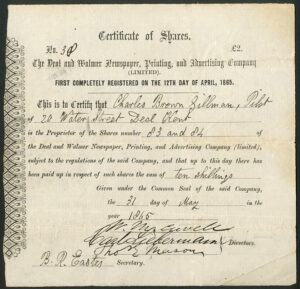 Certificate of Shares.
No. 38 £2.
The Deal and Walmer Newspaper, Printing, and Advertising Company
(LIMITED).
FIRST COMPLETELY REGISTERED ON THE 12TH DAY OF APRIL, 1865.
This is to Certify that Charles Brown Zillman, Pilot
of 20 Water Street Deal Kent
is the Proprietor of the Shares number 83 and 84 of
the Deal and Walmer Newspaper, Printing, and Advertising Company (limited),
subject to the regulations of the said Company, and that up to this day there has
been paid up in respect of such shares the sum of ten shillings
Given under the Common Seal of the said company,
the 31 day of May in the
year 1865
Directors.
Thos E Mason
B. R. Eastes Secretary.